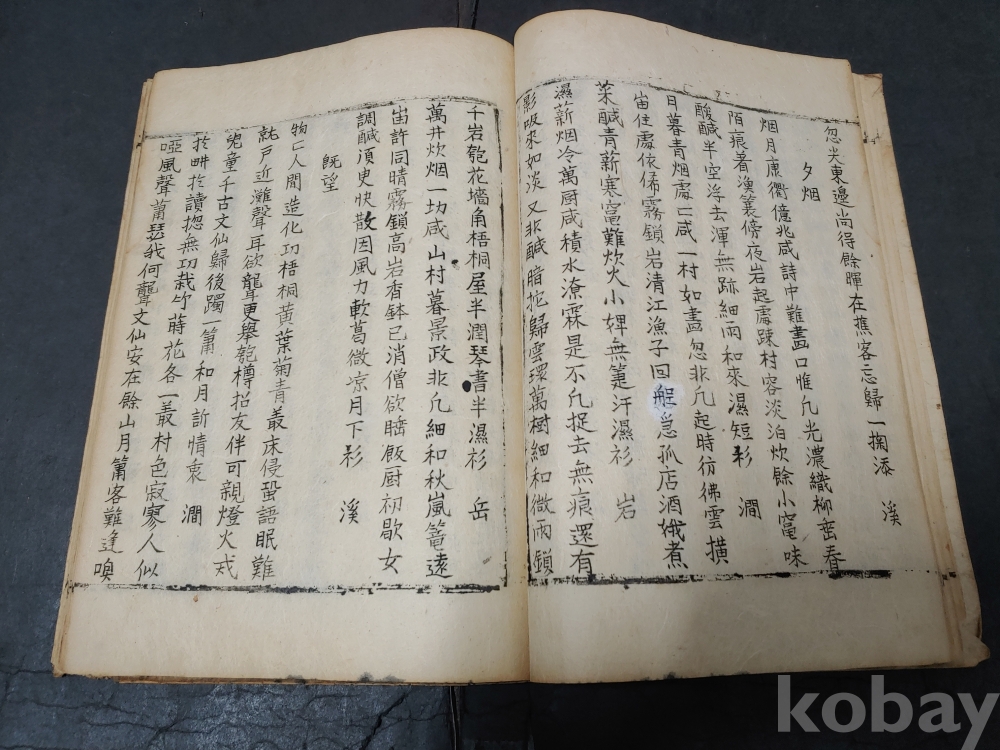 忽失東邊尚得餘暉在樵客忘歸一掬添 溪
夕烟
烟月康衢億兆咸詩中難畫口惟凡光濃織柳密春
陌痕着漁簑傍夜岩起處踈村容淡泊炊餘小窗味
酸鹹半空浮去渾無跡細雨和來濕短衫 澗
日暮青烟處〻咸一村如畫忽非凡起時彷彿雲橫
岫住處依俙霧鎖岩清江漁子回艇急孤店酒娥煮
茱鹹青薪寒窗難炊火小婢無筵汗濕衫 岩
濕薪烟冷萬厨咸積水潦霖是不凡捉去無痕還有
影吸來如淡又非鹹暗拕歸雲環萬樹細和微雨鎖
千岩匏花墻角梧桐屋半潤琴書半濕衫 岳
萬井炊烟一切咸山村暮景政非凡細和秋嵐篭遠
岫許同晴霧鎖高岩香鉢已消僧欲飯厨初歇女
調鹹須臾快散因風力軟葛微凉月下衫 溪
旣望
物〻人間造化功梧桐黃葉菊青叢床侵蛩語眠難
就戶近灘聲耳欲聾更擧匏樽招友伴可親燈火戒
兒童千古文仙歸後躅一簫和月訴情衷 澗
於耕於讀揔無功栽竹蒔花各一叢村色寂寥人似
啞風聲蕭瑟我何聾文仙安在餘山月簫客難逢嗅
kobay